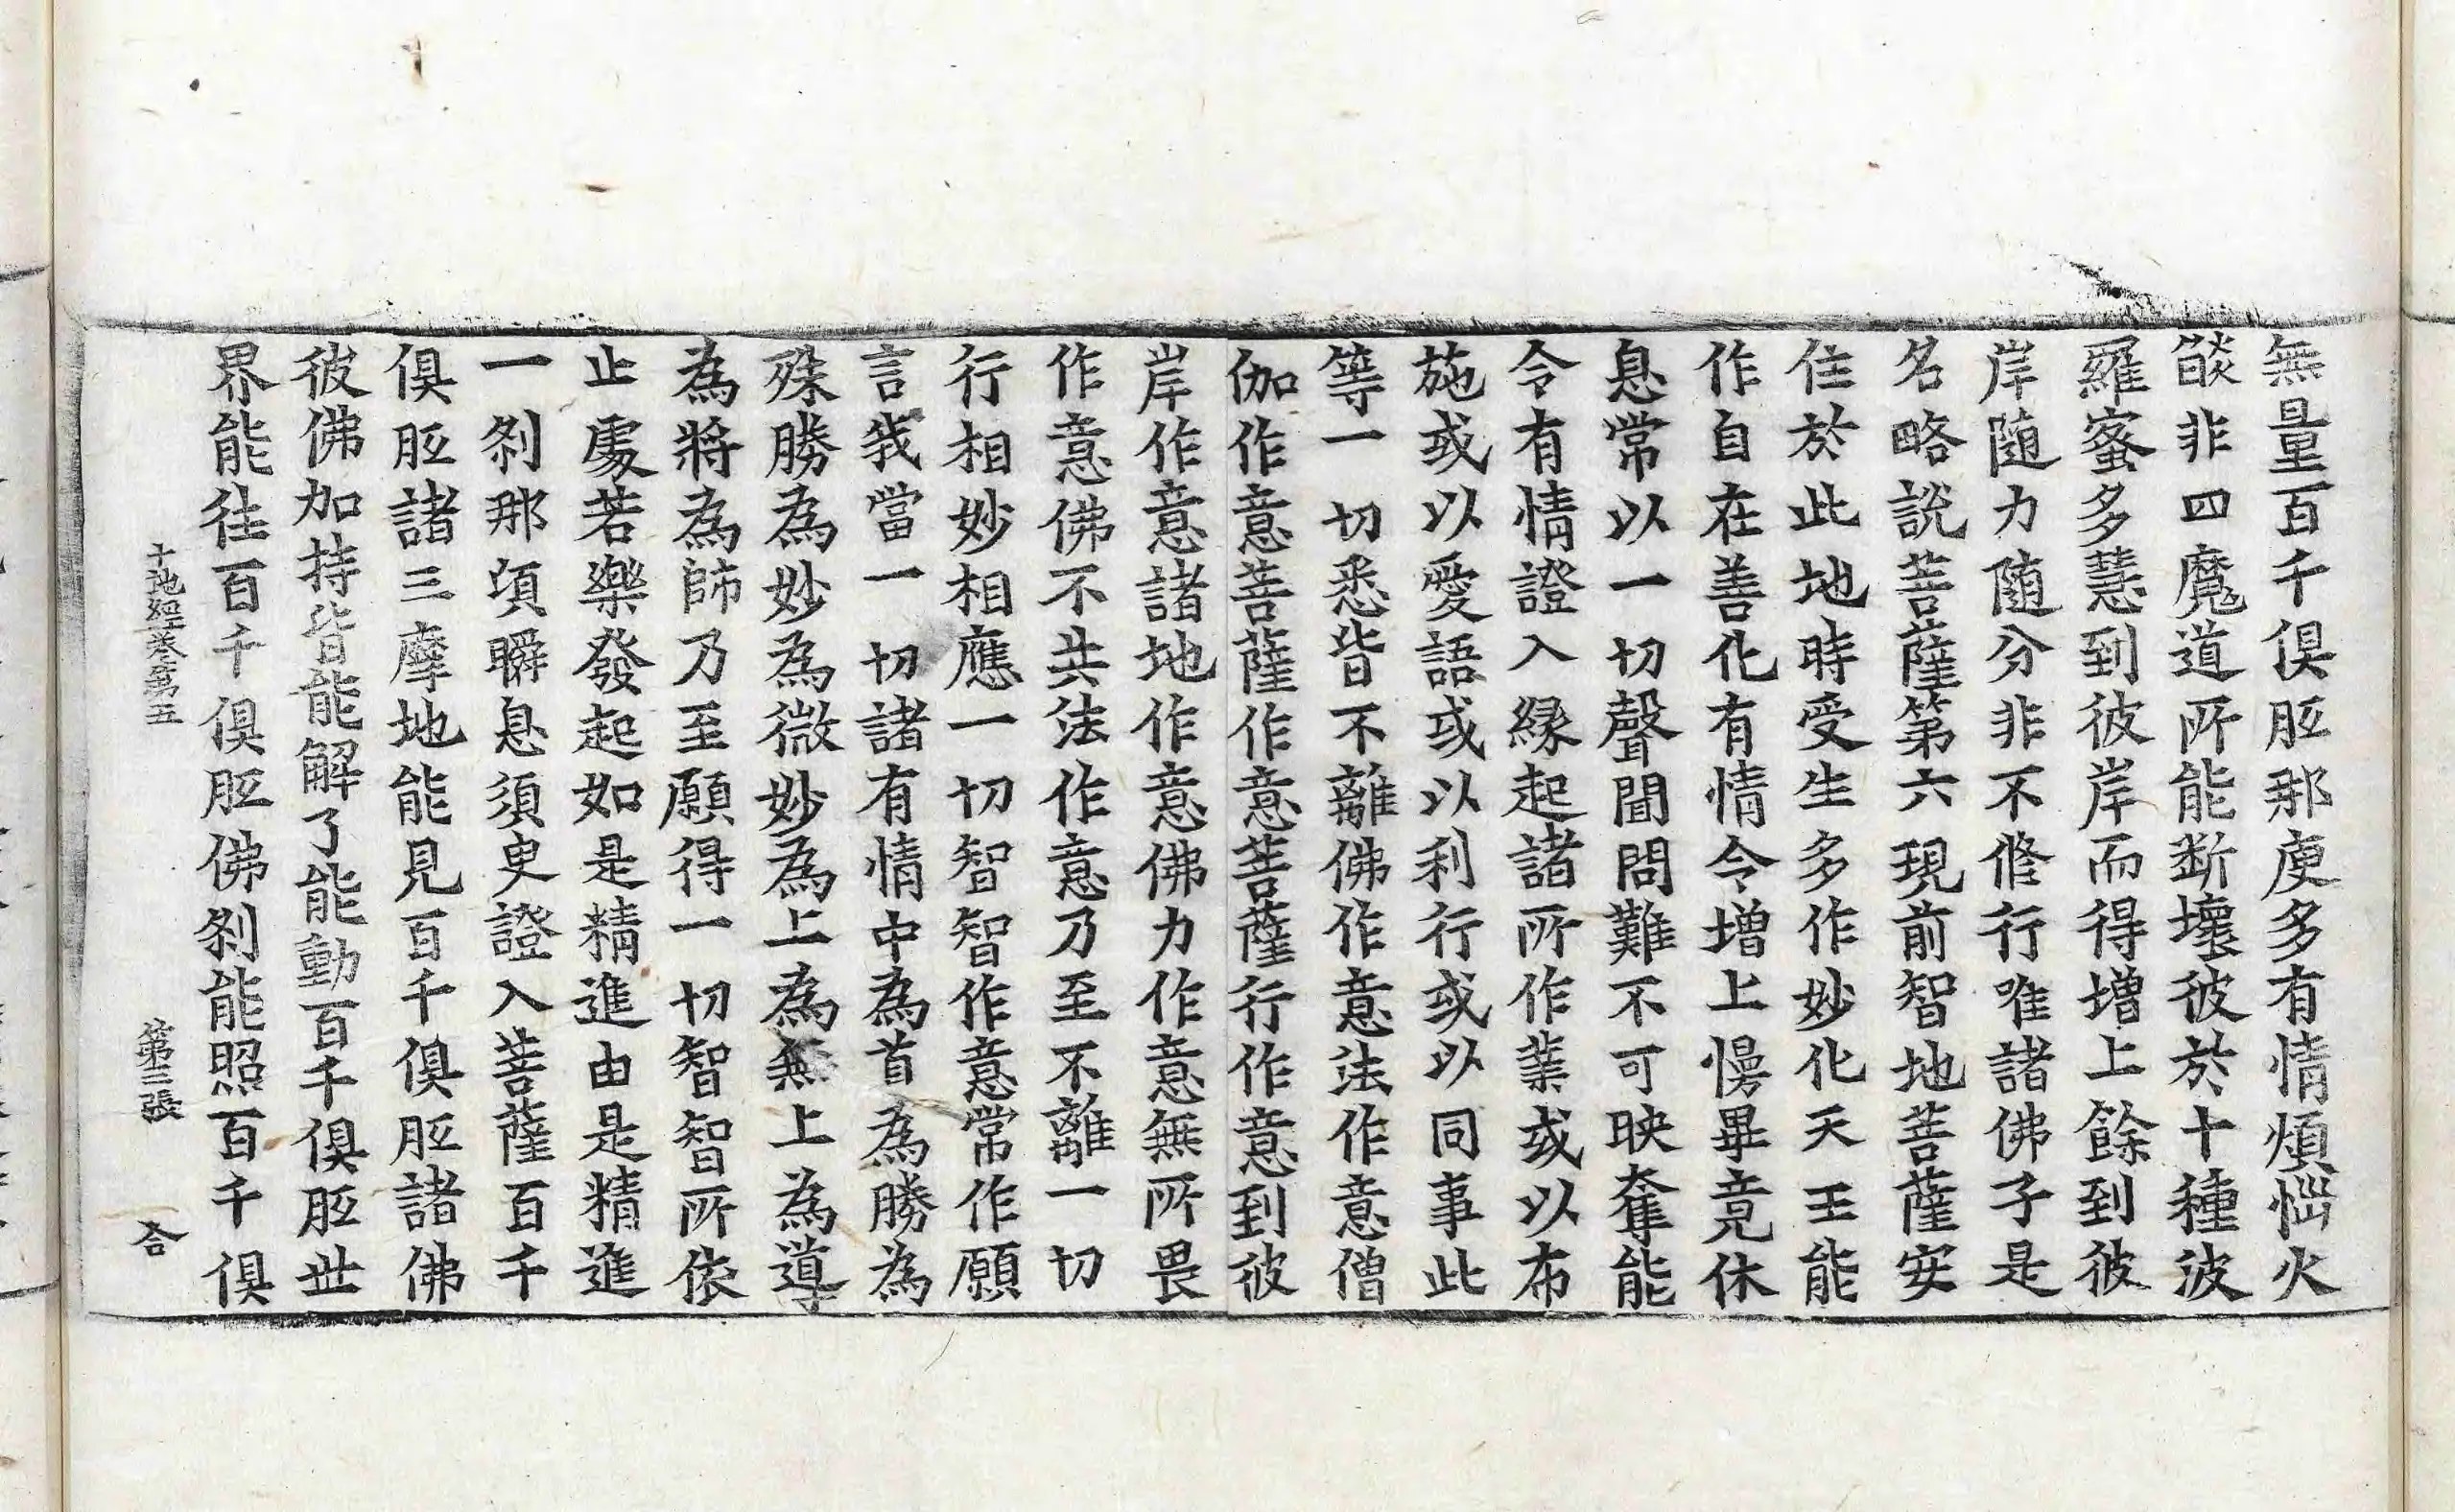 無量百千俱胝那庾多有情煩惱火
燄非四魔道所能斷壞彼於十種波
羅蜜多慧到彼岸而得增上餘到彼
岸随力随分非不修行唯諸佛子是
名略說菩薩第六現前智地菩薩安
住於此地時受生多作妙化天王能
作自在善化有情令增上慢畢竟休
息常以一切聲聞問難不可映奪能
令有情證入緣起諸所作業或以布
施或以愛語或以利行或以同事此
等一切悉皆不離佛作意法作意僧
伽作意菩薩作意菩薩行作意到彼
岸作意諸地作意佛力作意無所畏
作意佛不共法作意乃至不離一切
行相妙相應一切智智作意常作願
言我當一切諸有情中為首為勝為
殊勝為妙為微妙為上為無上為導
為將為帥乃至願得一切智智所依
止處若樂發起如是精進由是精進
一剎那頃瞬息須臾證入菩薩百千
俱胝諸三摩地能見百千俱胝諸佛
彼佛加持皆能解了能動百千俱胝世
界能往百千俱胝佛剎能照百千俱
十地經卷第五 第三張 合